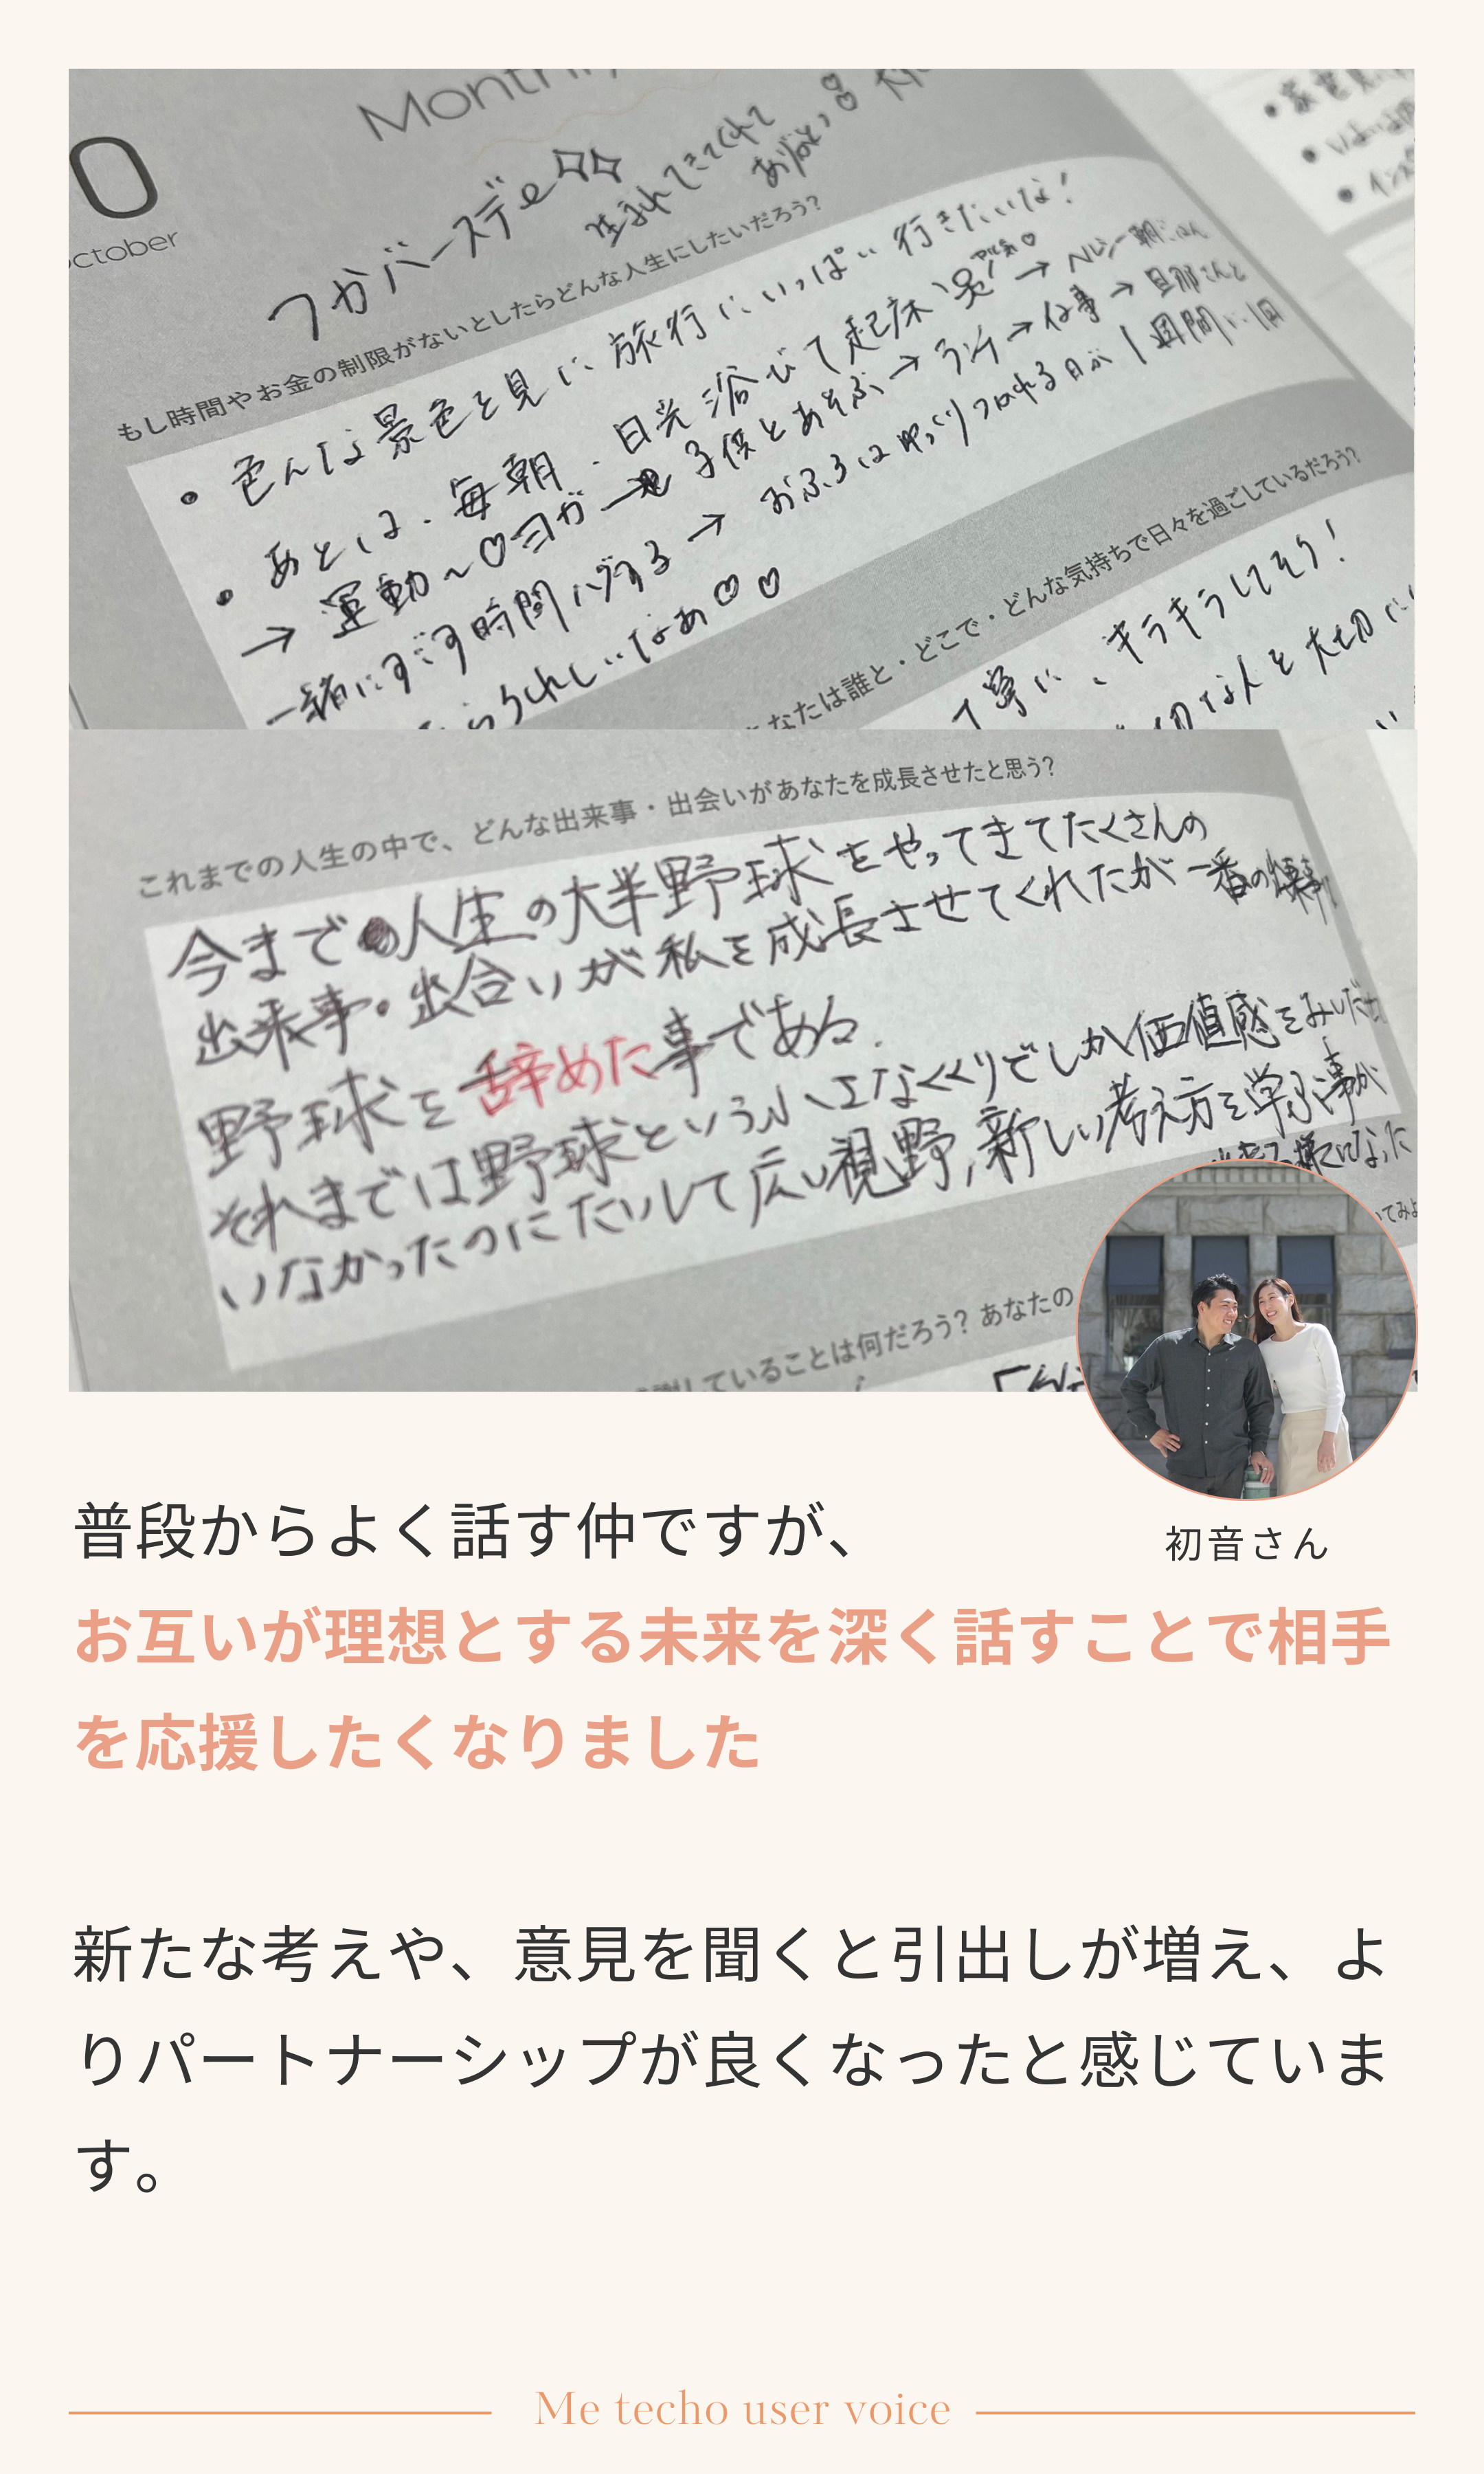 Monthly
October
つかバースデe
生まれてきてくれて
ありがとう
もし時間やお金の制限がないとしたらどんな人生にしたいだろう?
• 色んな景色を見に旅行にいっぱい行きたいな!
• あとは、毎朝、日光浴びて起床 → ヘルシー朝ごはん
→ 運動〜♡ヨガ → 子供とあそぶ → ランチ → 仕事 → 旦那さんと
一緒にすごす時間 → おふろはゆっくりつかれる日が1週間に1回
うれしいなぁ♡♡
なたは誰と・どこで・どんな気持ちで日々を過ごしているだろう?
丁寧に、キラキラしてそう!
切な人を大切に
これまでの人生の中で、どんな出来事・出会いがあなたを成長させたと思う?
今まで人生の大半野球をやってきてたくさんの
出来事・出合いが私を成長させてくれたが一番の
野球を辞めた事である.
それまでは野球というなくくりでしか価値感をみいだせ
いなかったのにたいして広い視野,新しい考え方を学ぶ事が
様になった
していることは何だろう? あなたの
いてみよ
初音さん
普段からよく話す仲ですが、
お互いが理想とする未来を深く話すことで相手
を応援したくなりました
新たな考えや、意見を聞くと引出しが増え、よ
りパートナーシップが良くなったと感じていま
す。
Me techo user voice